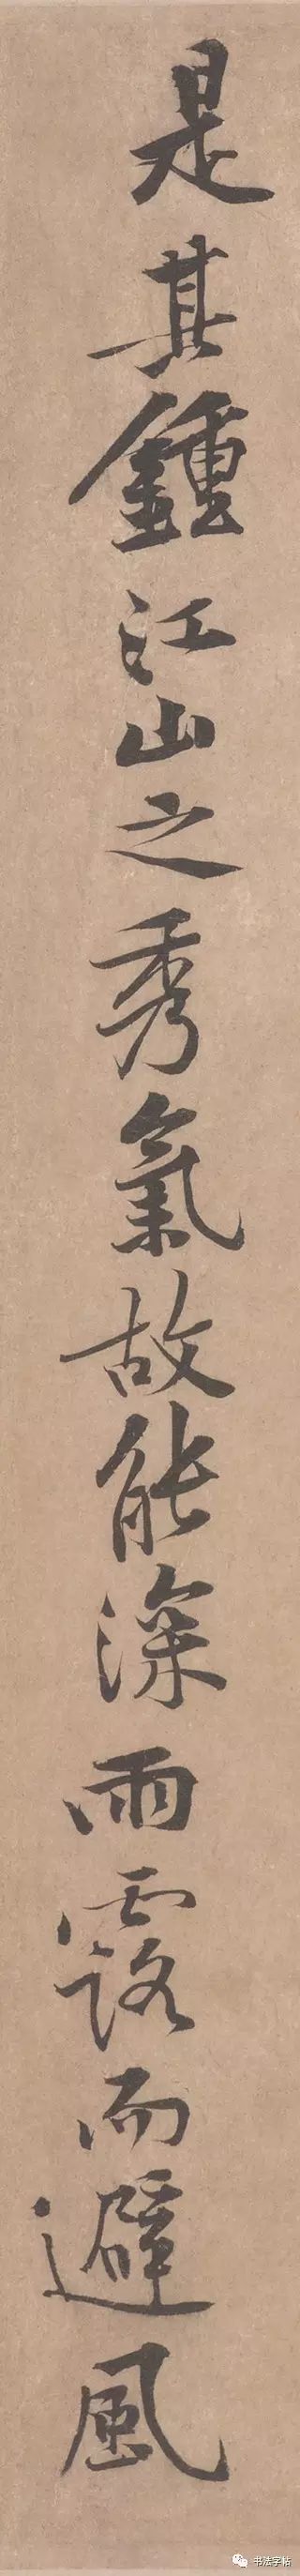 是其鍾江山之秀氣故能深雨露而避風
书法字帖